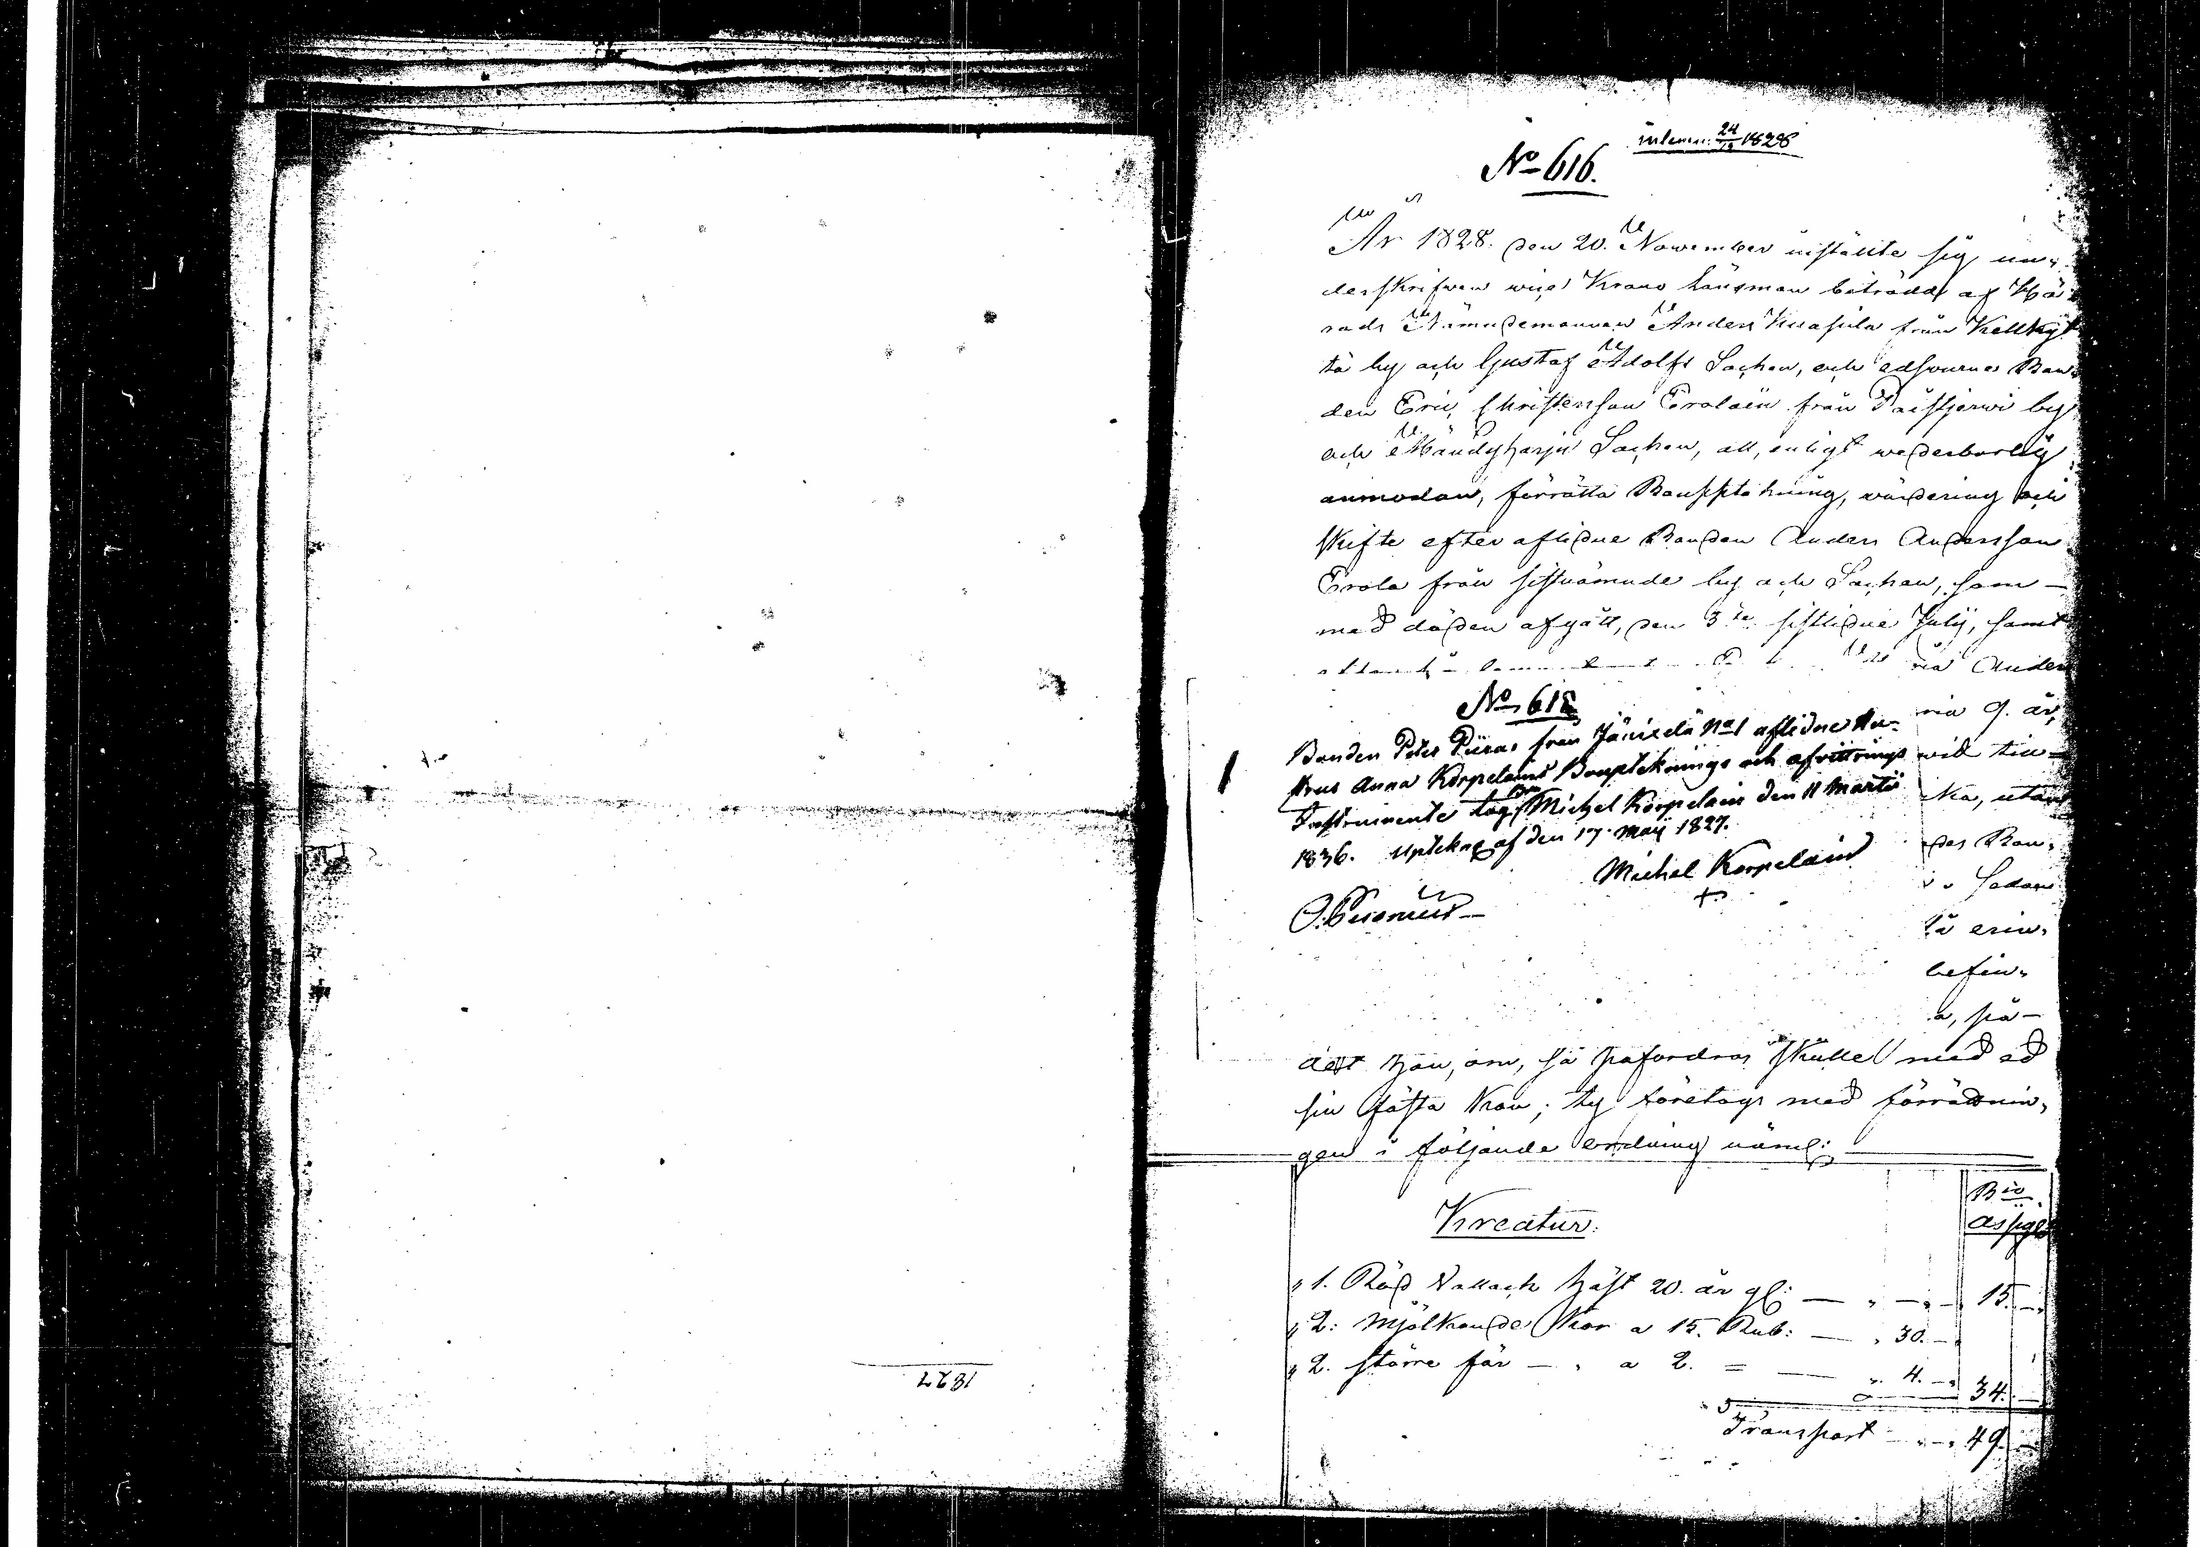 1827
inlemn. 24/12 1828
No 616.
År 1828. den 20. November instälte sig un-
derskrifven vice Krono Länsman biträdd af Hä-
rads Nämndemannen Anders Kuasula från Kellky
tä by och Gustaf Adolfs Sochen, och edsvurne Bon-
den Eric Christersson Erolain från Paistjerwi by
och Mändyharju Sochen, att, enligt wederborlig
anmodan, förrätta Boupptekning, wärdering och
skifte efter aflidne Bonden Anders Andersson
Erola från sistnämnde by och Sochen, som —
med döden afgått, den 3de sistlidne Julij, samt
Anders
No 618
Bonden Peter Piiras från Jänixelä No 1 aflidne Hu-
strus Anna Korpelains Boupteknings och afvittrings
Instrumente tog Bn Michel Korpelain den 11 Martii
1836. Uptekng af den 17 Maij 1827.
Michel Korpelain
+
ria 9. år,
wid tin-
ka, utan
des Bon-
Sedan
tä erin-
befin-
a, på-
det han, om, så pafordras skulle med ed
sin fästa kan; ty företogs med förrättnin-
gen i följande ordning näml:
Kreatur.
Bco
Assigr
" 1. Röd Wallach häst 20. år gl: — " — " 15. —
" 2: Mjölkande Kor a 15. Rub: — " 30. —
" 2. större får — " a 2. = — " 4. — 34. —
Transport — " — 49. —